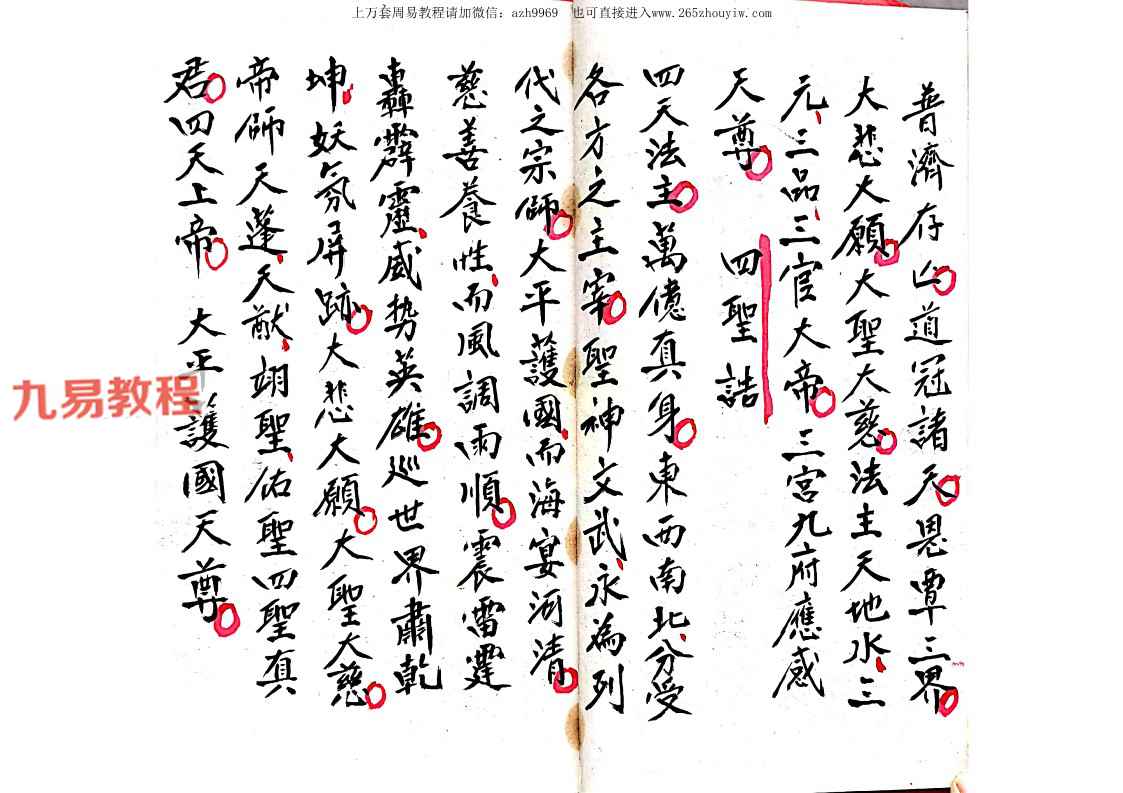 上万套周易教程请加微信：azh9969 也可直接进入www.265zhouyiw.com
普濟存亾道冠諸天恩覃三界
大悲大願大聖大慈法主天地水三
元三品三官大帝三宮九府應感
天尊 四聖誥
四天法主萬億真身東西南北分受
各方之主宰聖神文武永為列
代之宗師大平護國而海宴河清
慈善養性而風調雨順震雷霆
轟霹靂威势英雄巡世界肅乾
坤妖氛屏跡大悲大願大聖大慈
帝師天蓬天猷翊聖佑聖四聖真
君四天上帝 大正護國天尊
九易教程